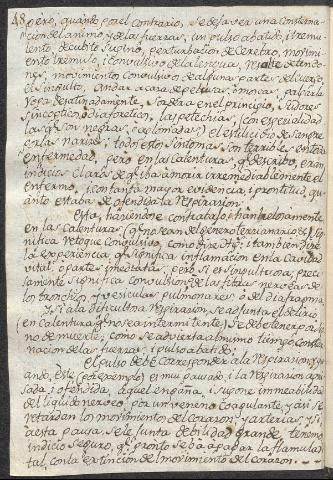 48
pero, quando por el contrario, se dexa ver una consterna-
cion del animo, y de las fuerzas, un pulso abatido, i tremu-
lento, decubito supino, perturbacion de Cerebro, movimi-
ento tremulo, i convulsivo de la lengua, salto de tendo-
nes, movimiento convulsivo de alguna parte del cuerpo
el singulto, andar a caza de pelusas, ò moscas, palabri
vaga desatinadamente, sordera en el principio, sudores
sincopticos, ò diaforeticos, las petechias, (con especialidad
las que son negras, ò aplomadas) el estilicidio de sangre
en las narices; todos estos sintomas son terribles en toda
enfermedad, pero en las calenturas que describo, eran
indicios claros de que iba à morir irremediablemente el
enfermo, i con tanta mayor evidencia, i prontitud, qu-
anto estaba de ofendida la Respirasion.
Esta, haviendose contratado, i hanhelosamente
en las calenturas (que no sean del genero terzianario &c.) sig-
nifica veteque convulsivo, como dixe aqui: tambien dixe
la experiencia, que significa inflamacion en la cavidad
vital, o partes inmediatas, pero si es impulcrosa, preci-
samente significa convulsion de las fibras nervosas de
los bronchios, y vesicular pulmonares, ò del diafragma.
Si à la dificultosa Respirasion, se adjunta el delirio,
en calentura que no sea intermitente, se debe tener por sig-
no de muerte, como se advierta al mismo tiempo conster-
nacion de las fuerzas, i pulso abatido;
El pulso debe corresponder à la Respirasion; qu-
ando, este (por exemplo) es mui pausado, i la Respirasion apre-
surada, i ofendida, aquel engaña, i supone inmeabilidad
del liquido nerveo, por un veneno coagulante, y asi se
retardan los movimientos del corazon, y arterias, y si
à esta pausa, se le junta debilidad grande, tenemos
indicio seguro, que pronto se ba à apagar la flamula vi-
tal, con la extincion del movimiento del corazon.